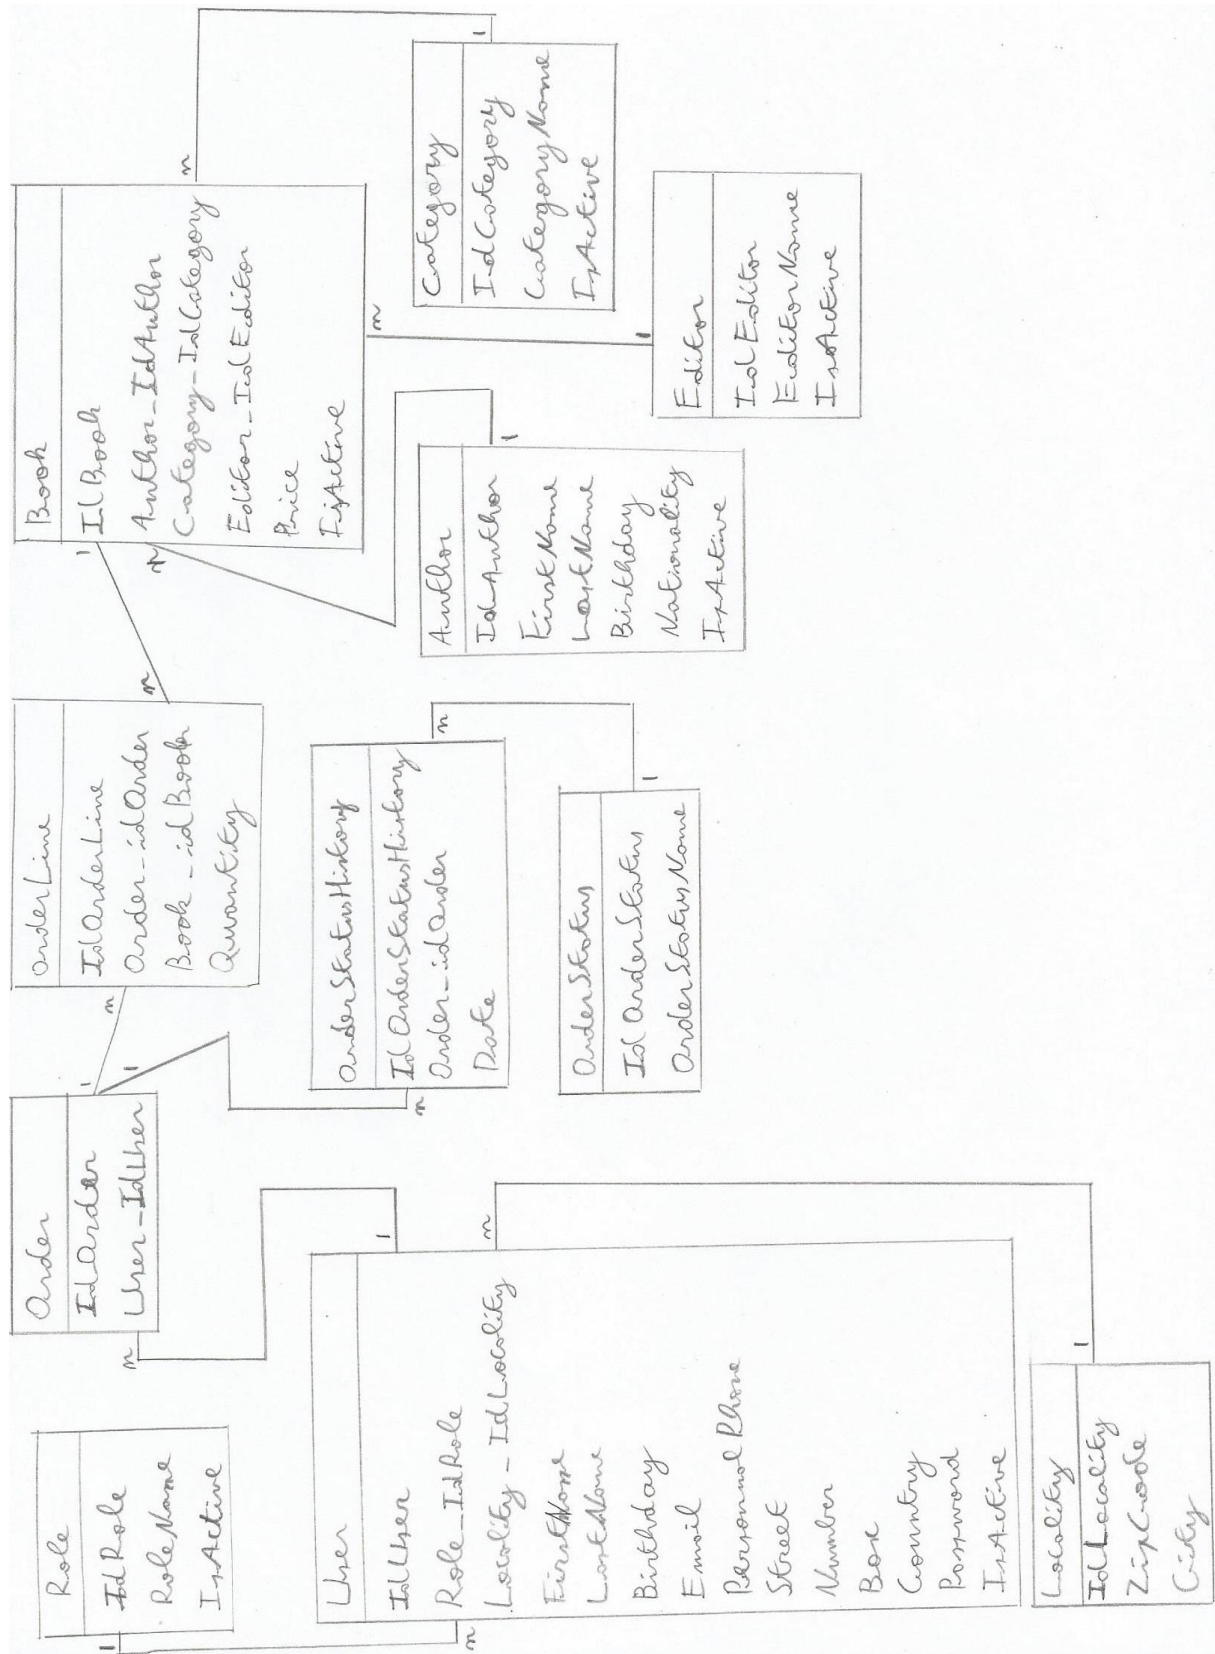 Role
IdRole
RoleName
IsActive
1
n
User
IdUser
Role_IdRole
Locality_IdLocality
FirstName
LastName
Birthday
Email
PersonnalPhone
Street
Number
Box
Country
Password
IsActive
1
n
Locality
IdLocality
ZipCode
City
1
Order
IdOrder
User_IdUser
n
1
1
OrderLine
IdOrderLine
Order_idOrder
Book_idBook
Quantity
n
n
OrderStatusHistory
IdOrderStatusHistory
Order_idOrder
Date
n
n
OrderStatus
IdOrderStatus
OrderStatusName
1
Book
IdBook
Author_IdAuthor
Category_IdCategory
Editor_IdEditor
Price
IsActive
1
n
n
n
Author
IdAuthor
FirstName
LastName
Birthday
Nationality
IsActive
1
Category
IdCategory
CategoryName
IsActive
1
Editor
IdEditor
EditorName
IsActive
1